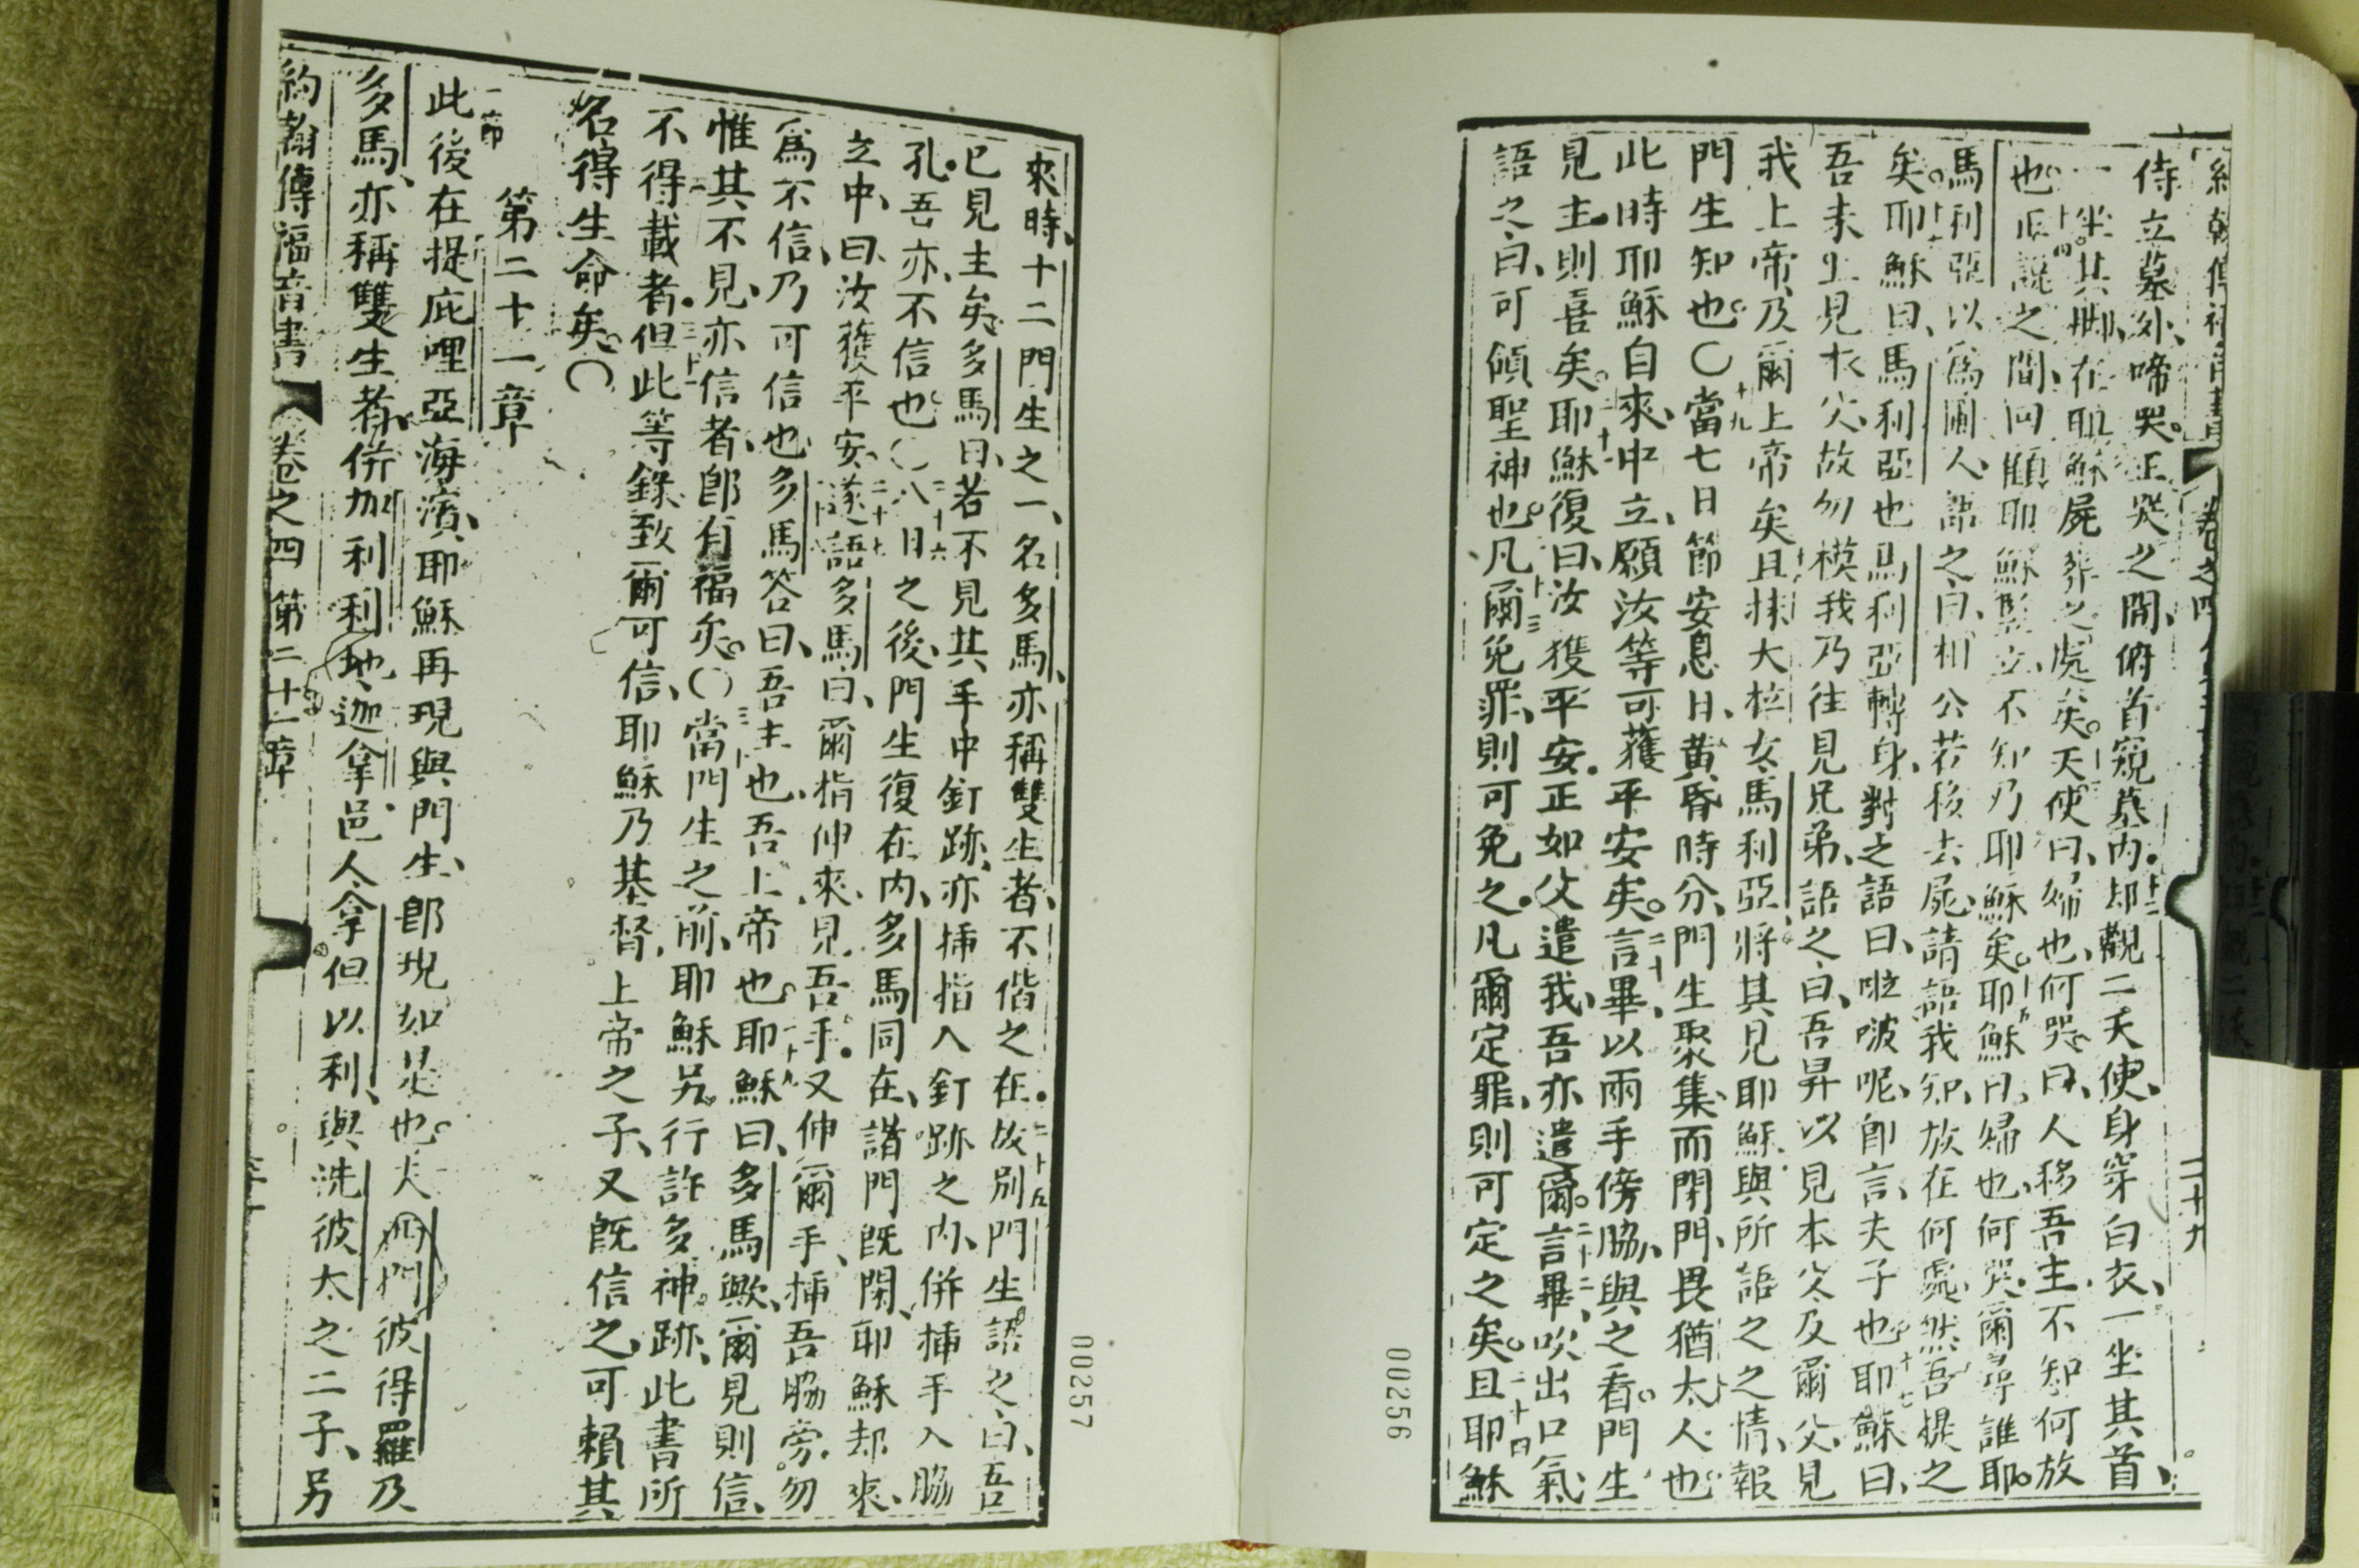 約翰傳福音書 卷之四 二十九
侍立墓外、啼哭。正哭之間、俯首窺墓內。十二却觀二天使、身穿白衣、一坐其首、
一坐其脚、在耶穌屍葬之處矣。十三天使曰、婦也、何哭。曰、人移吾主、不知何放
也。十四正說之間、回顧耶穌立、不知乃耶穌矣。十五耶穌曰、婦也、何哭。爾尋誰耶。
馬利亞以為園人、語之曰、相公若移去屍、請語我知、放在何處、然吾提之
矣。十六耶穌曰、馬利亞也。馬利亞轉身、對之語曰、啦啵呢、卽言、夫子也。十七耶穌曰、
吾未上見本父、故勿模我、乃往見兄弟、語之曰、吾昇以見本父及爾父、見
我上帝、及爾上帝矣。十八且抹大拉女馬利亞、將其見耶穌、與所語之之情、報
門生知也。〇十九當七日節安息日、黃昏時分、門生聚集、而閉門、畏猶太人也。
此時耶穌自來、中立、願汝等可獲平安矣。二十言畢、以兩手傍脇、與之看。門生
見主、則喜矣。二十一耶穌復曰、汝獲平安。正如父遣我、吾亦遣爾。二十二言畢、吹出口氣、
語之曰、可傾聖神也。二十三凡爾免罪、則可免之。凡爾定罪、則可定之矣。二十四且耶穌
來時、十二門生之一、名多馬、亦稱雙生者、不偕之在。二十五故別門生語之曰、吾
已見主矣。多馬曰、若不見其手中釘跡、亦揷指入釘跡之內、併揷手入脇
孔、吾亦不信也。〇二十六八日之後、門生復在內、多馬同在、諸門既閉、耶穌却來、
立中、曰、汝獲平安。二十七遂語多馬曰、爾指伸來、見吾手。又伸爾手、揷吾脇旁。勿
為不信、乃可信也。二十八多馬答曰、吾主也、吾上帝也。二十九耶穌曰、多馬歟、爾見則信、
惟其不見、亦信者、卽有福矣。〇三十當門生之前、耶穌另行許多神跡、此書所
不得載者。三十一但此等錄、致爾可信、耶穌乃基督、上帝之子、又既信之、可賴其
名得生命矣。〇
第二十一章
一節此後在提庇哩亞海濱、耶穌再現與門生、卽現如是也。夫西門彼得羅及
多馬、亦稱雙生者、併加利利地迦拿邑人拿但以利、與洗彼太之二子、另
約翰傳福音書 卷之四 第二十一章
00257
00256